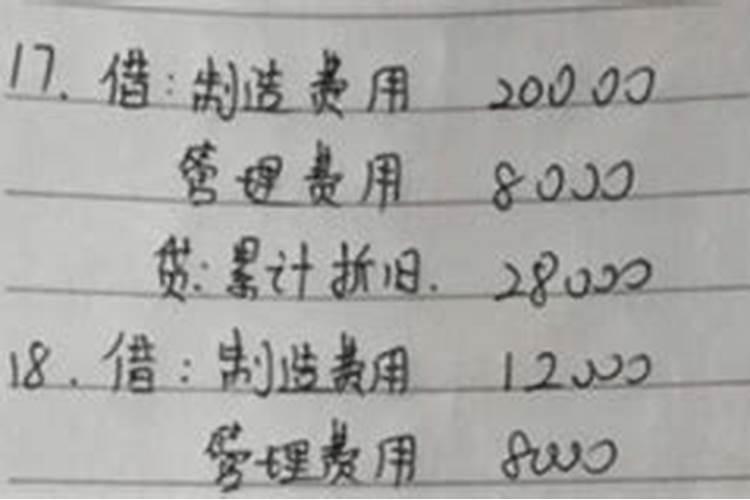 17. 借:制造费用 20000
管理费用 8000
贷:累计折旧. 28000
18. 借:制造费用 12000
管理费用 8000